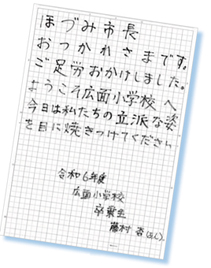 ほづみ市長
おつかれさまです。
ご足労おかけしました。
ようこそ広面小学校へ
今日は私たちの立派な姿
を目に焼きつけてください
令和6年度
広面小学校
卒業生
藤村